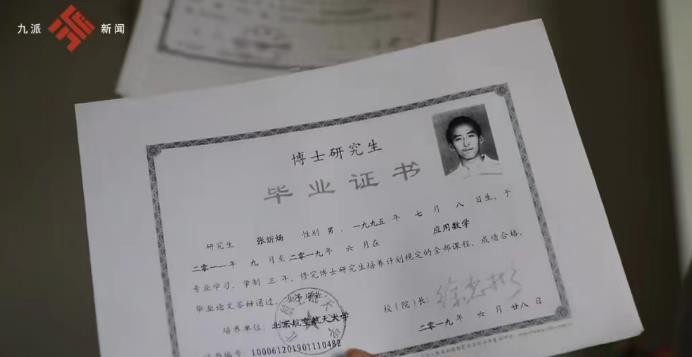 九派 新闻
博士研究生
毕业证书
研究生 张炘炀 性别 男，一九九五年 七月 八日生，于
二〇一一年 九月至二〇一九年 六月在 应用数学
专业学习，学制 三 年，修完博士研究生培养计划规定的全部课程，成绩合格，
毕业论文答辩通过，
培养单位：北京航空航天大学
校（院）长：
二〇一九年 六月 廿八日
证书编号：100061201901110482